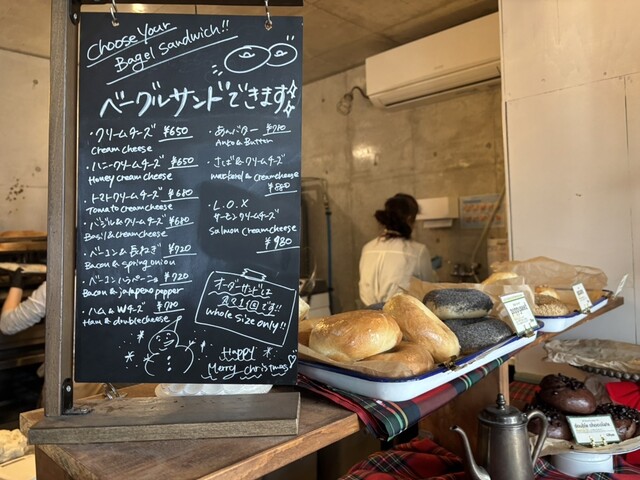 Choose Your
Bagel Sandwich!!
ベーグルサンドできます
・クリームチーズ ¥650
Cream cheese
・ハニークリームチーズ ¥650
Honey cream cheese
・トマトクリームチーズ ¥680
Tomato cream cheese
・バジル&クリームチーズ ¥680
Basil & cream cheese
・ベーコン&長ねぎ ¥720
Bacon & spring onion
・ベーコンハラペーニョ ¥720
Bacon & jalapeno pepper
・ハム&Wチーズ
Ham & double cheese
・あんバター
Anko & Butter
・さば&クリームチーズ
mackerel & cream cheese
・L.O.X
サーモンクリームチーズ
Salmon cream cheese
¥980
オーダーサンドは
whole size only!!
Happy
Merry christmas
double chocolate